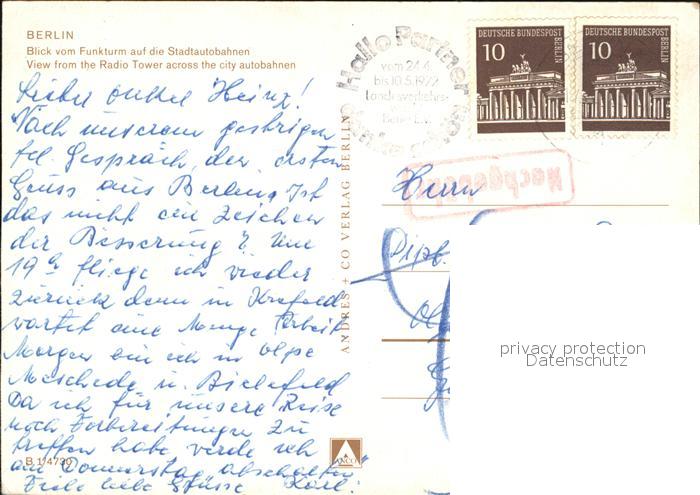 BERLIN
Blick vom Funkturm auf die Stadtautobahnen
View from the Radio Tower across the city autobahnen
Lieber Onkel Heinz!
Nach unserem gestrigen
tel. Gespräch, den ersten
Gruss aus Berlin, Ist
das nicht ein Zeichen
der Besserung? Um
19 fliege ich wieder
zurück denn in Krefeld
wartet eine Menge Arbeit
Morgen bin ich in Olpe
Meschede u. Bielefeld
Da ich für unsere Reise
noch Vorbereitungen zu
treffen habe werde ich
am Donnerstag abschalten
Viele liebe Grüsse Karl.
B 1/4730
ANDRES + CO VERLAG BERLIN
ANCO
Hallo Partner
vom 24.4.
bis 10.5.1972
Landesverkehrs-
Berlin e.V.
DEUTSCHE BUNDESPOST
BERLIN
10
DEUTSCHE BUNDESPOST
BERLIN
10
Herrn
Dipl.
privacy protection
Datenschutz